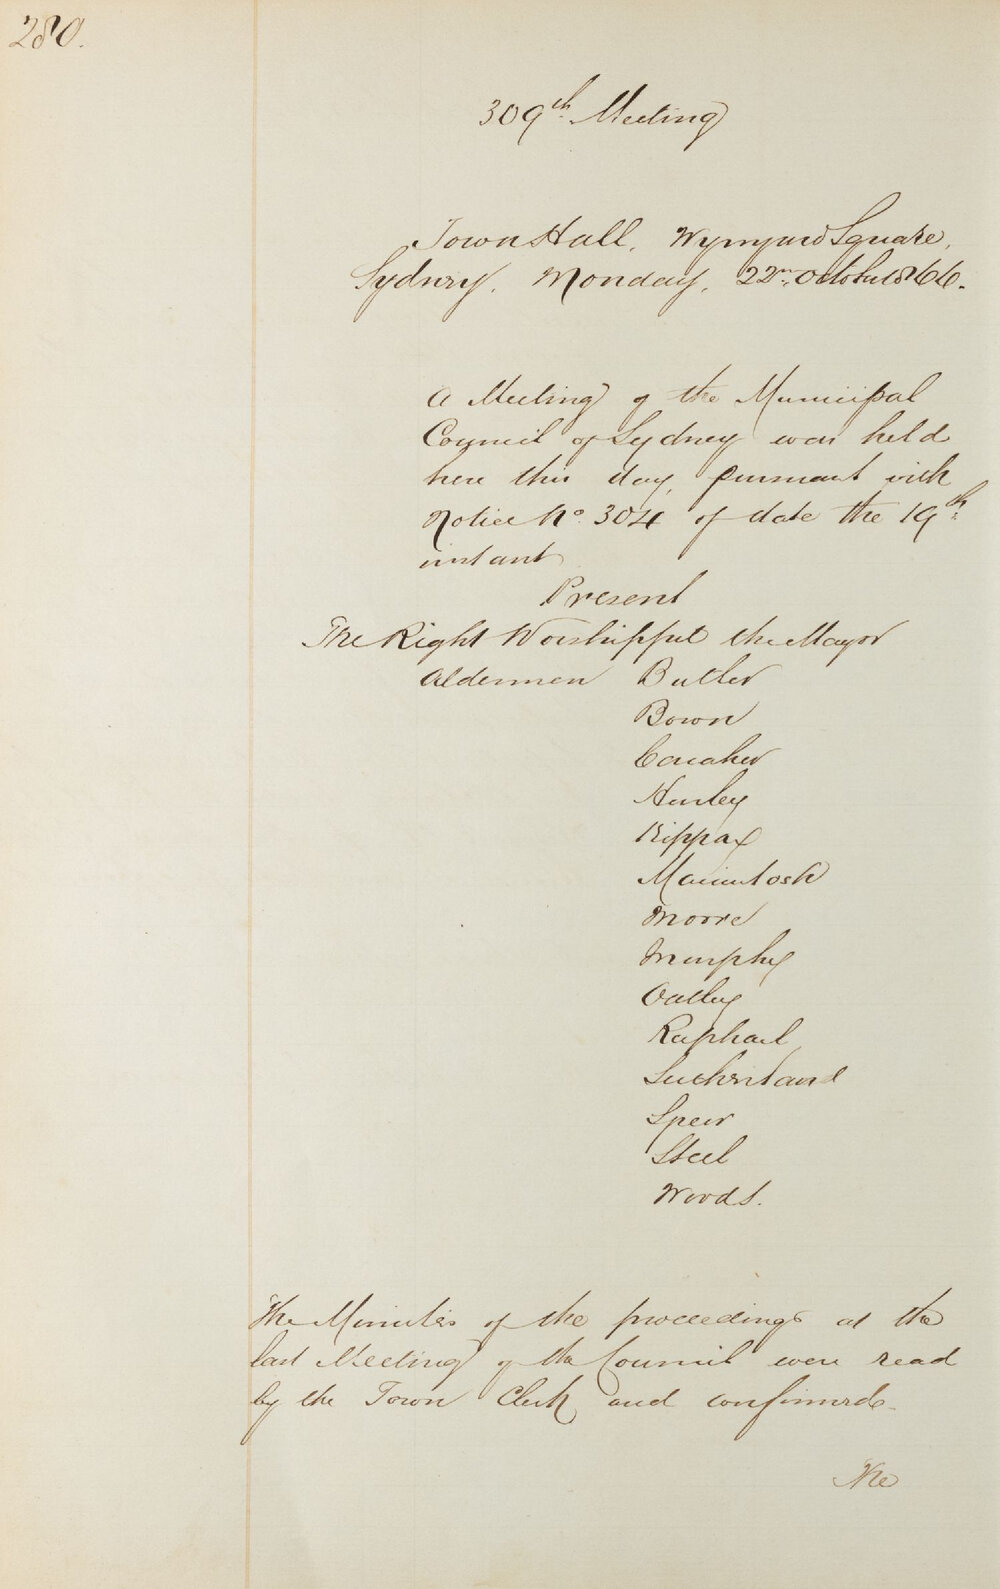 280.
309th Meeting
Town Hall, Wynyard Square,
Sydney, Monday, 22nd October 1866.
A Meeting of the Municipal
Council of Sydney was held
here this day, pursuant with
Notice No. 304 of date the 19th
instant
Present
The Right Worshipful the Mayor
Aldermen Butler
Bown
Caraher
Hurley
Kippax
Macintosh
Moore
Murphy
Oatley
Raphael
Sutherland
Speer
Steel
Woods.
The Minutes of the proceedings at the
last Meeting of the Council were read
by the Town Clerk and confirmed.
The